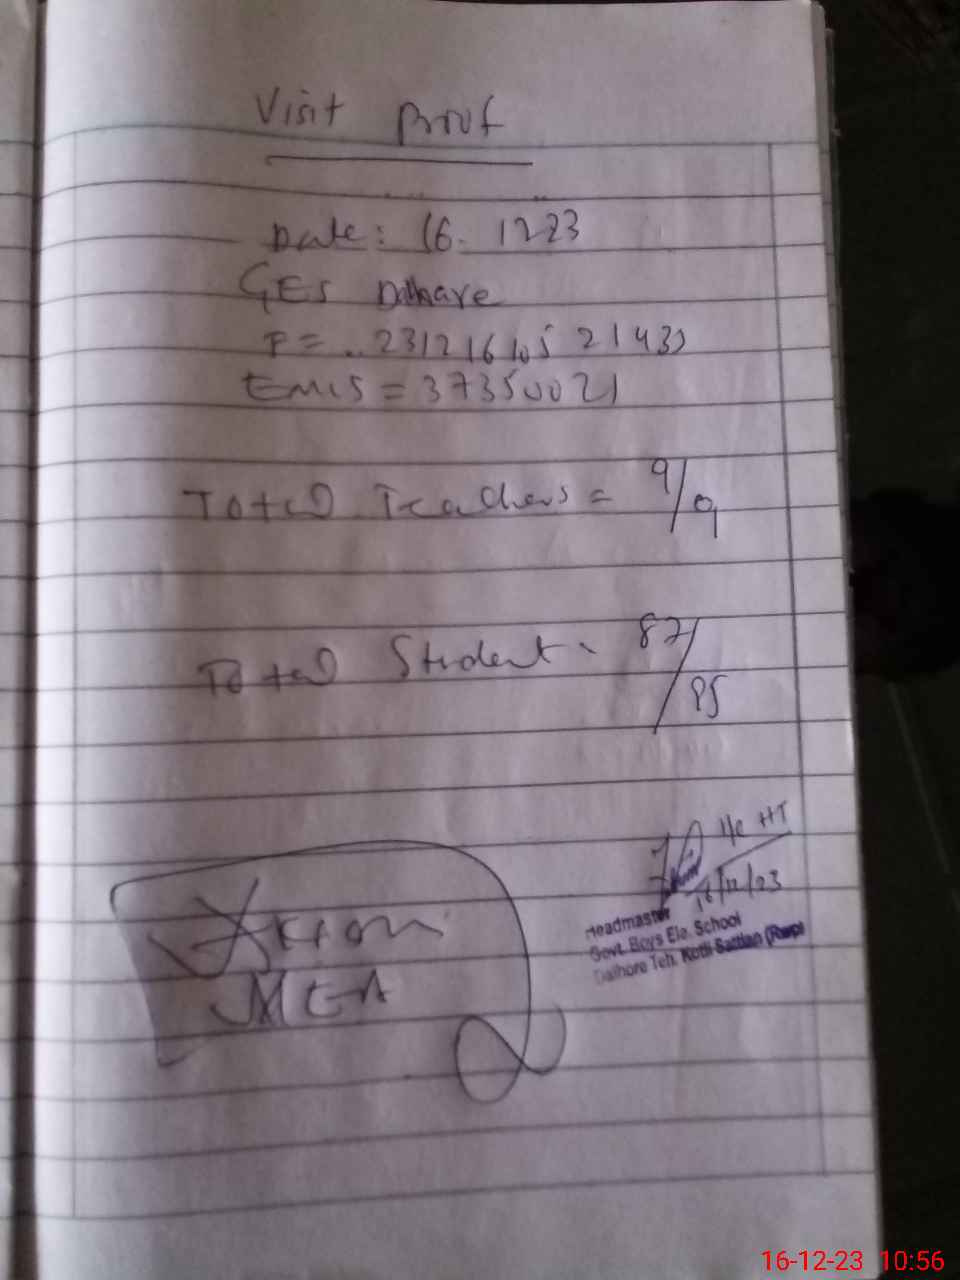 Visit Prof
Date: 16. 12 23
GES Dalhare
EMIS = 37350021
Total Teachers = 9/9
Total Student = 87/85
I/C HT
16/12/23
Headmaster
Govt. Boys Ele. School
Dalhore Teh. Kotli Sattian (Rwp)
Akram
MEA
16-12-23 10:56